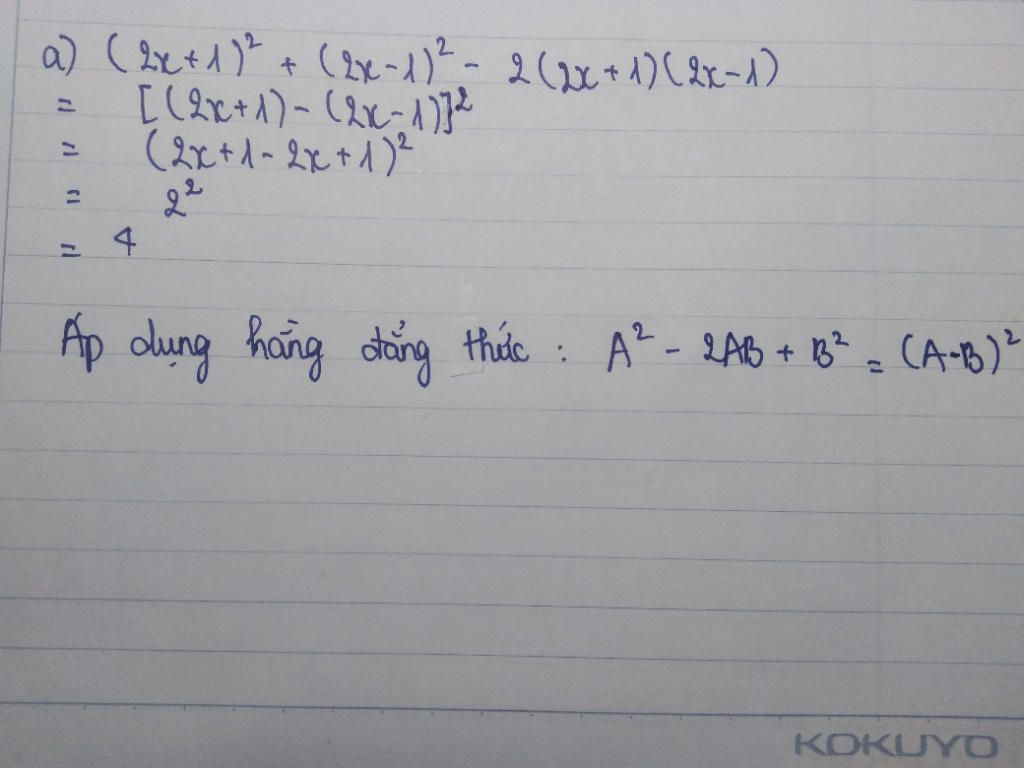 a) (2x+1)² + (2x-1)² - 2(2x+1)(2x-1)
= [(2x+1)-(2x-1)]²
= (2x+1-2x+1)²
= 2²
= 4
Áp dụng hằng đẳng thức : A² - 2AB + B² = (A-B)²
KOKUYO